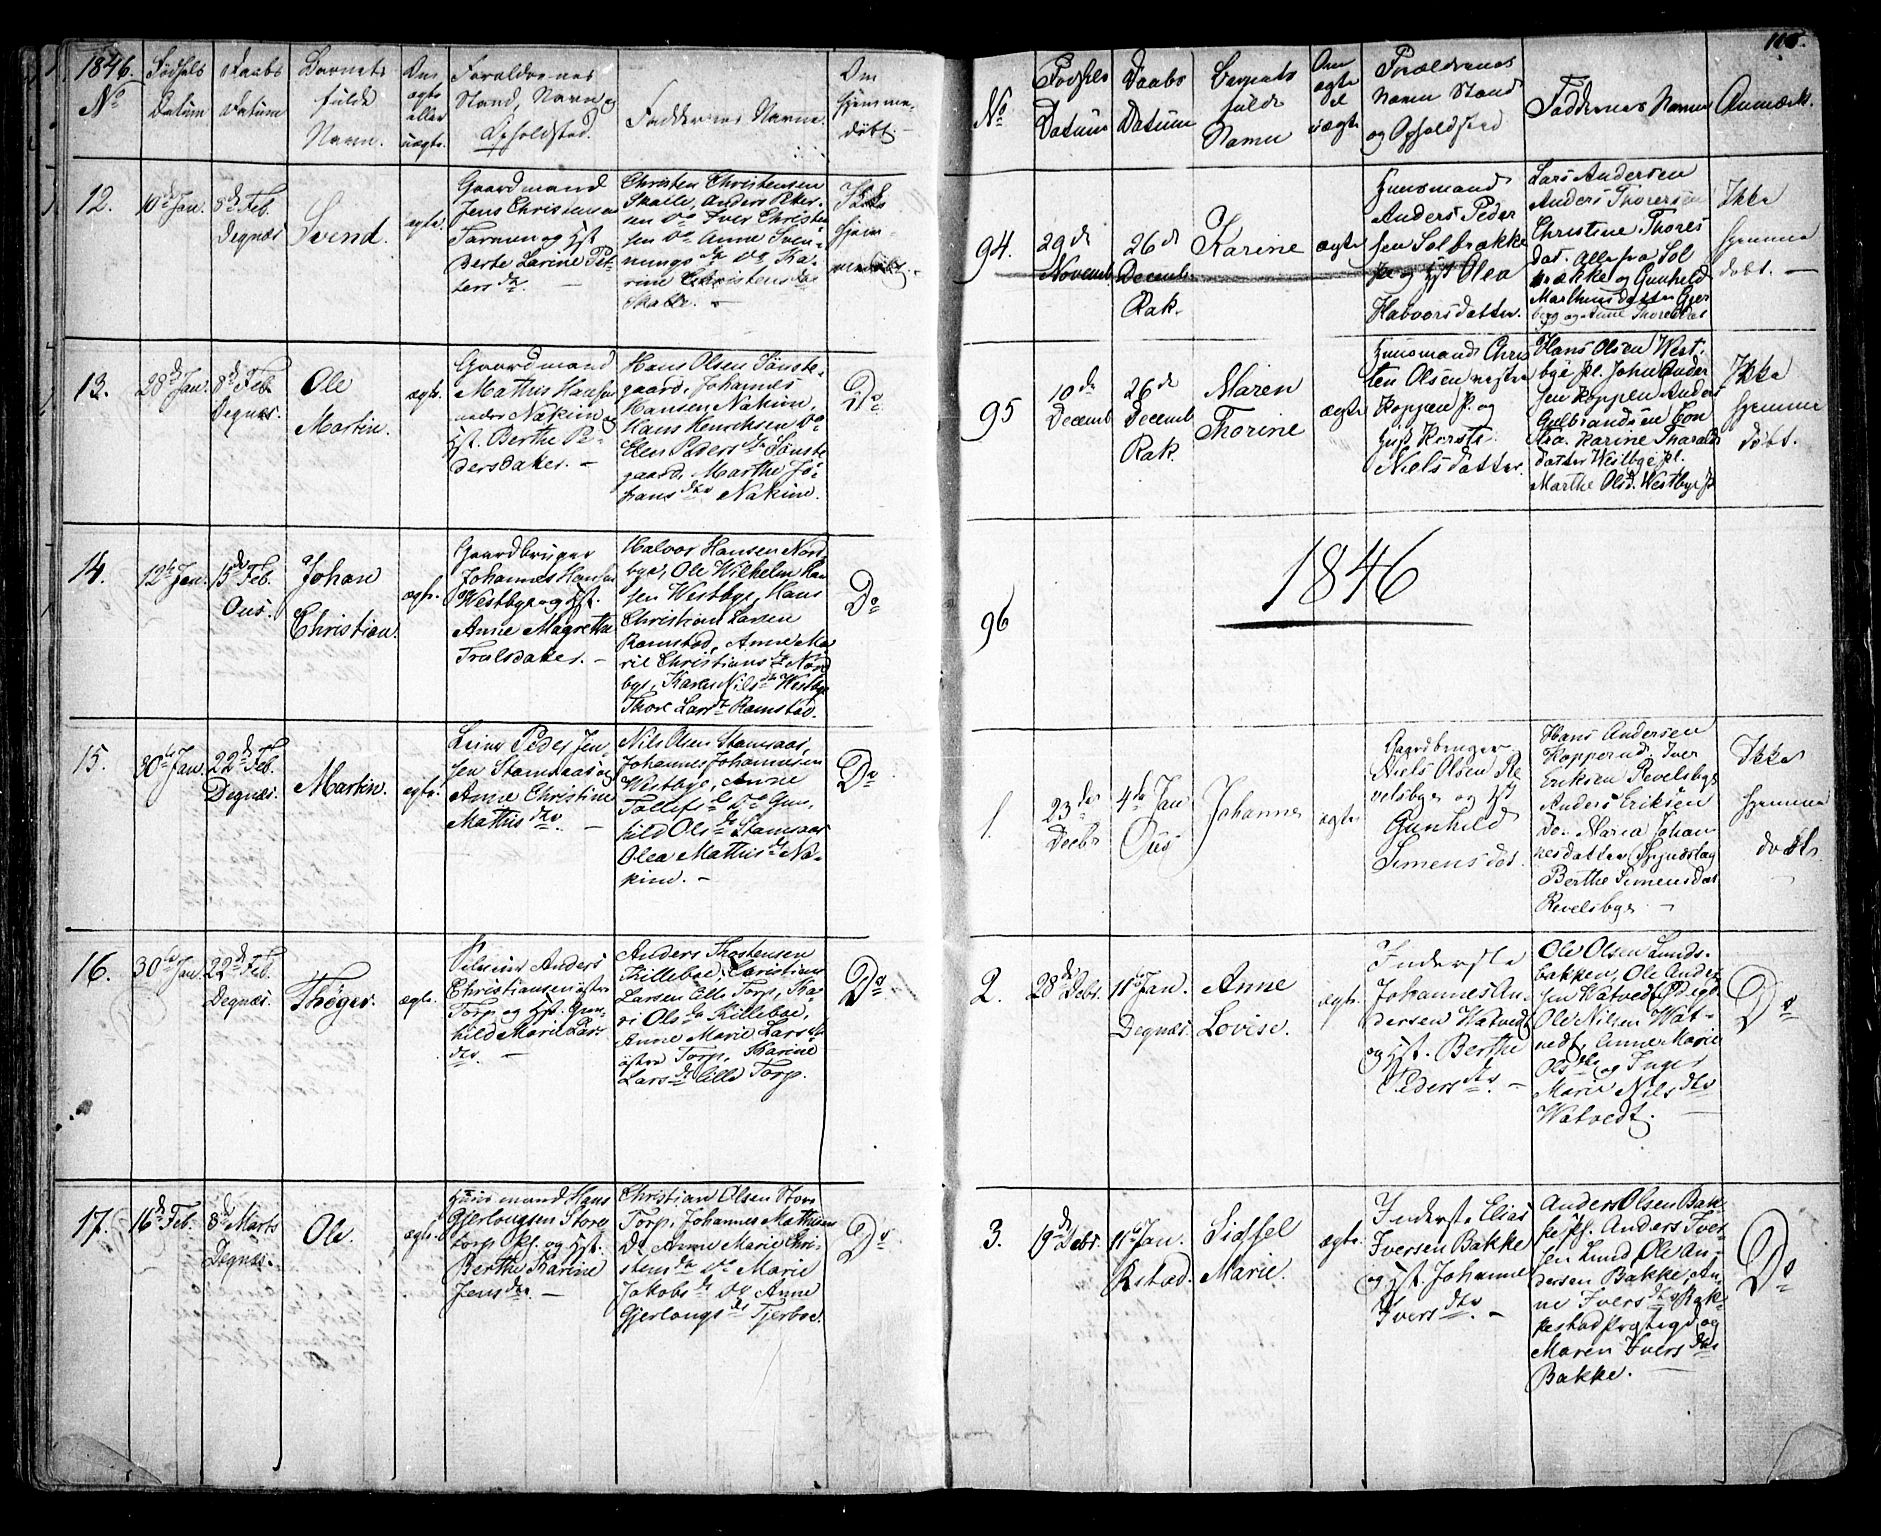 1846.
No
Fødsels
Datum
Daabs
Datum
Barnets
fulde
Navn.
Om
ægte
eller
uægte.
Forældrenes
Stand, Navn og
Opholdsted.
Faddernes Navne.
Om
hjemme-
døbt.
12.
10de Jan.
8de Feb.
Degnæs
Svend.
ægte.
Gaardmand
Jens Christensen
og Hst.
Berte Larine Pet-
ters dtr.
Christen Christensen
Anders Peter-
sen do Iver Christen
sen do Anne Sven-
nungs dtr do Ka-
rine Christens dtr
Ikke
hjem-
medøbt.
13.
28de Jan.
8de Feb.
Degnæs.
Ole
Martin.
ægte.
Gaardmand
Mathis Hansen
Nakim og
Hst. Berthe Pe-
dersdatter.
Hans Olsen Tønste-
gaard, Johannes
Hansen Nakim,
Hans Henrichsen do
Elen Peders dtr Tønste
gaard, Marthe Jo-
hans dtr Nakim.
Do
14.
12te Jan.
15de Feb.
Ous.
Johan
Christian.
ægte.
Gaardbruger
Johannes Hansen
Westbye og Hst.
Anne Magrethe
Trulsdatter.
Halvor Hansen Nord-
bye, Ole Wilhelm Han
sen Westbye, Hans
Christian Larsen
Ramstad, Anne Ma
ril Christians dtr Nord
bye, Karen Nils dtr Westbye
Thore Lars dtr Ramstad.
Do
15.
30te Jan.
22de Feb.
Degnæs.
Martin.
ægte.
Peder Jen-
sen Stamsaas og
Anne Christine
Mathis dtr.
Nils Olsen Stamsaas,
Johannes Johannesen
Westbye, Anne
do Gun-
hild Ols dtr Stamsaas
Olea Mathis dtr Na-
kim.
Do
16.
30te Jan.
22de Feb.
Degnæs.
Thøger.
ægte.
Anders
Christiansen østre
Torp og Hst. Gun-
hild Maril Lars
dtr.
Anders Thostensen
Killeboe, Christian
Larsen Lille Torp, Ka-
ri Ols dtr Killeboe,
Anne Marie Lars dtr
østre Torp, Karine
Lars dtr Lille Torp.
Do
17.
16de Feb.
8de Marts
Degnæs.
Ole.
ægte.
Huusmand Hans
Gjerlougsen Store
torp Pl. og Hst.
Berthe Karine
Jens dtr.
Christian Olsen Store
Torp, Johannes Mathisen
Do Anne Marie Chri-
stens dtr do Marie
Jakobs dtr do Anne
Gjerlougs dtr Tjerboe.
Do
No
Fødsels
Datum
Daabs
Datum
Barnets
fulde
Navn
Om
ægte
el
uægte
Forældrenes
Navn Stand
og Opholdsted
Faddernes Navne
Anmærk.
94.
29de
Novemb
26de
Decemb.
Rak.
Karine
ægte
Huusmand
Anders Peder
sen Solbrække
og Hst Olea
Halvorsdatter.
Lars Andersen
Anders Thoresen
Christine Thores
dat. Alle fra Sol
brække og Gunhild
Mathiusdatter Gjer
berg og Anne Thoresdat
Ikke
hjemme
døbt.
95
10de
Decemb
26de
Decemb
Rak.
Maren
Thorine
ægte
Huusmand Chris
ten Olsen vestre
Koppen Pl. og
Hust Kersti
Nielsdatter.
Hans Olsen West-
bye Pl. John Ander
sen Koppen Anders
Gulbrandsen Lon
Karine Tharalds
datter Westbye Pl.
Marthe Olsd. Westbye Pl
Ikke
hjemme
døbt.
96
1846
1.
23de
Decbr
4de Jan
Ous
Johannes
ægte
Gaardbruger
Niels Olsen Re
velsbye og Hst
Gunhild
Simensdat.
Hans Andersen
Kopperud, Iver
Eriksen Revelsbye
Anders Eriksen
Do. Maria Johan
nesdatter
Berthe Simensdat
Revelsbye
Ikke
hjemme
døbt.
2.
28de Decbr.
11te Jan.
Degnæs.
Anne
Lovise.
ægte.
Inderste
Johannes An-
dersen Watvedt
og Hst. Berthe
Peders dtr.
Ole Olsen Lunds-
bakken, Ole Ander
sen Watvedt
Ole Nilsen Wat-
vedt, Anne Marie
Ols dtr og Inger
Marie Nils dtr
Watvedt.
Do
3.
19de Decbr.
11te Jan.
Rstad.
Sidsel
Marie.
ægte.
Inderste Elias
Iversen Bakke
og Hst. Johanne
Ivers dtr.
Anders Olsen Bak-
ke Pl. Anders Iver-
sen Lund, Ole An-
dersen Bakke, An-
ne Ivers dtr
og
Maren Ivers dtr
Bakke.
Do